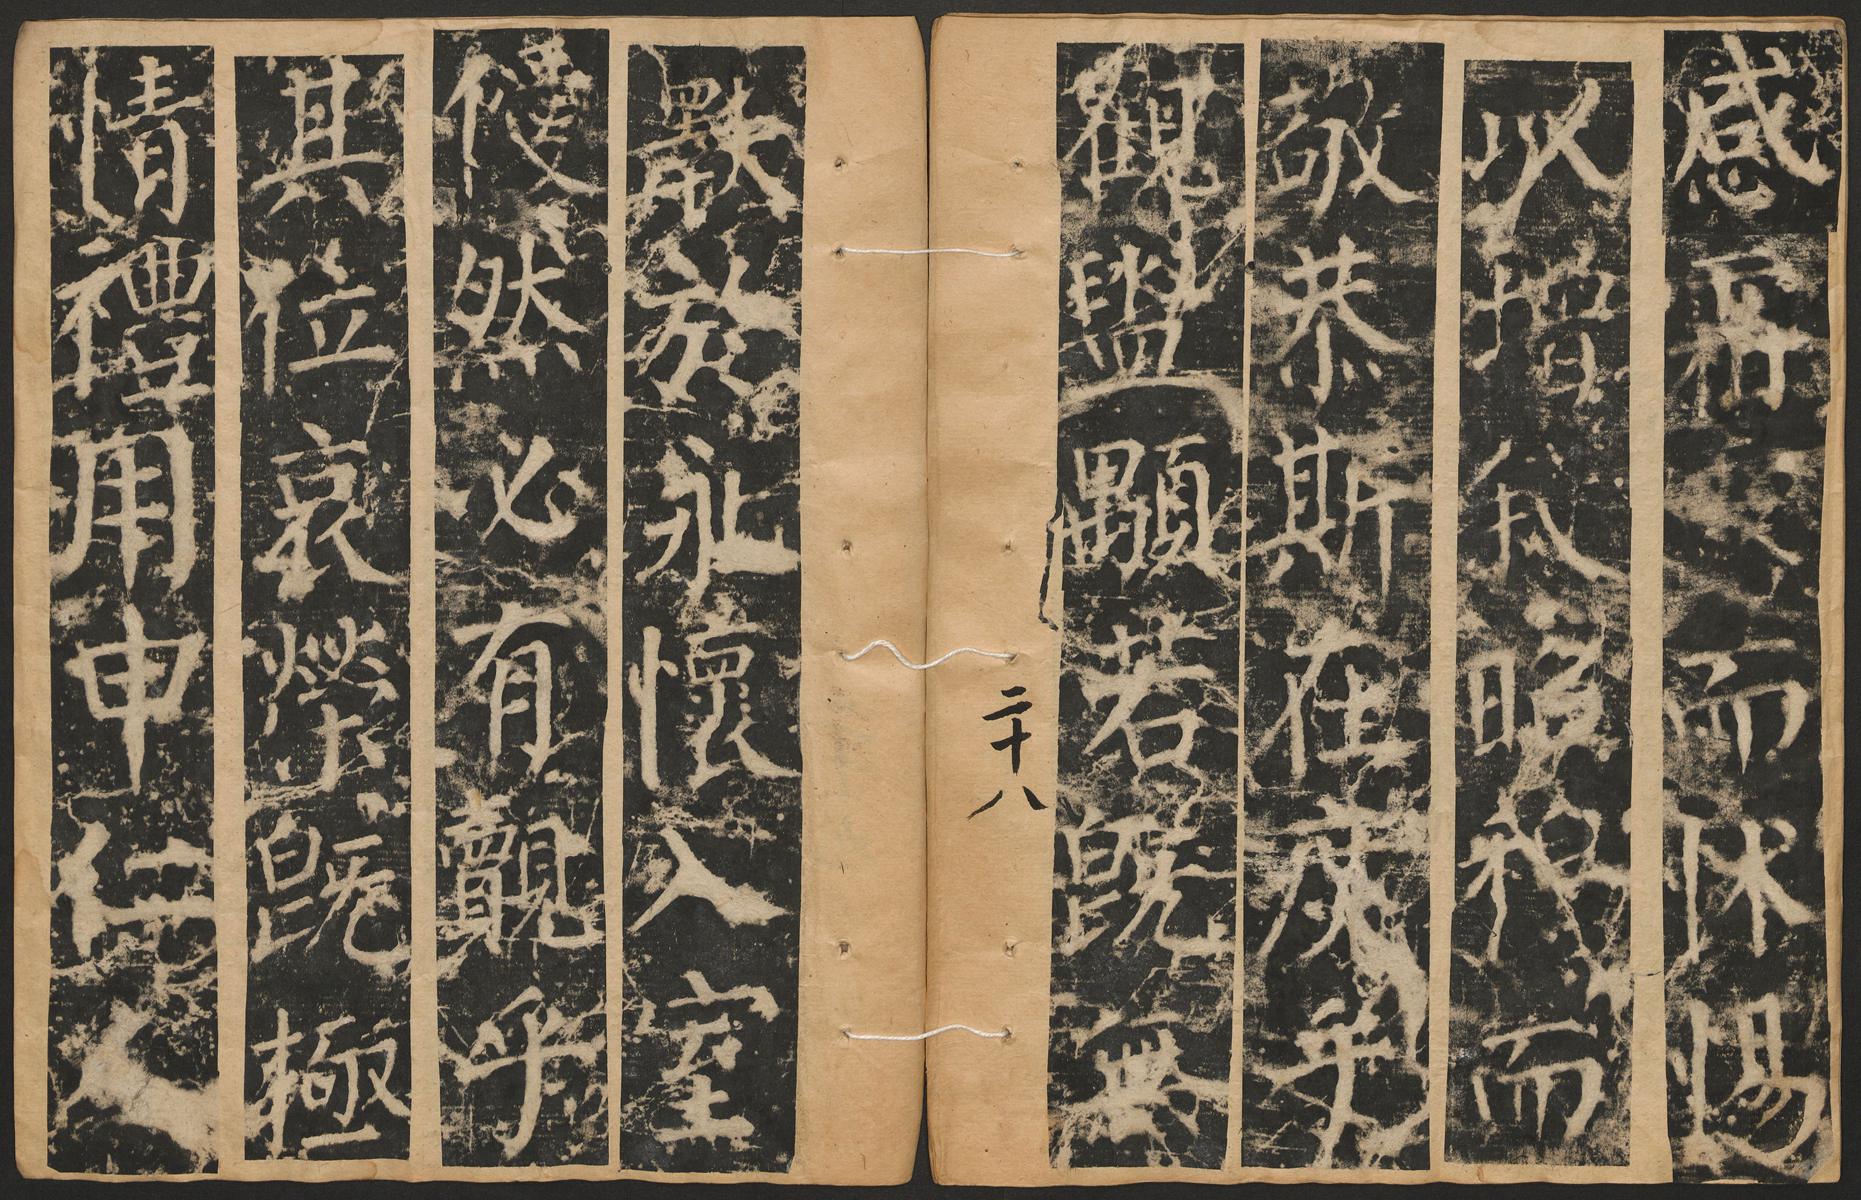 感而怵惕
以增昭和而
敬恭斯在庶乎
觀盥顒若既無
二十八
斁於永懷入室
僾然必有覿乎
其位哀榮既極
情禮用申仁人